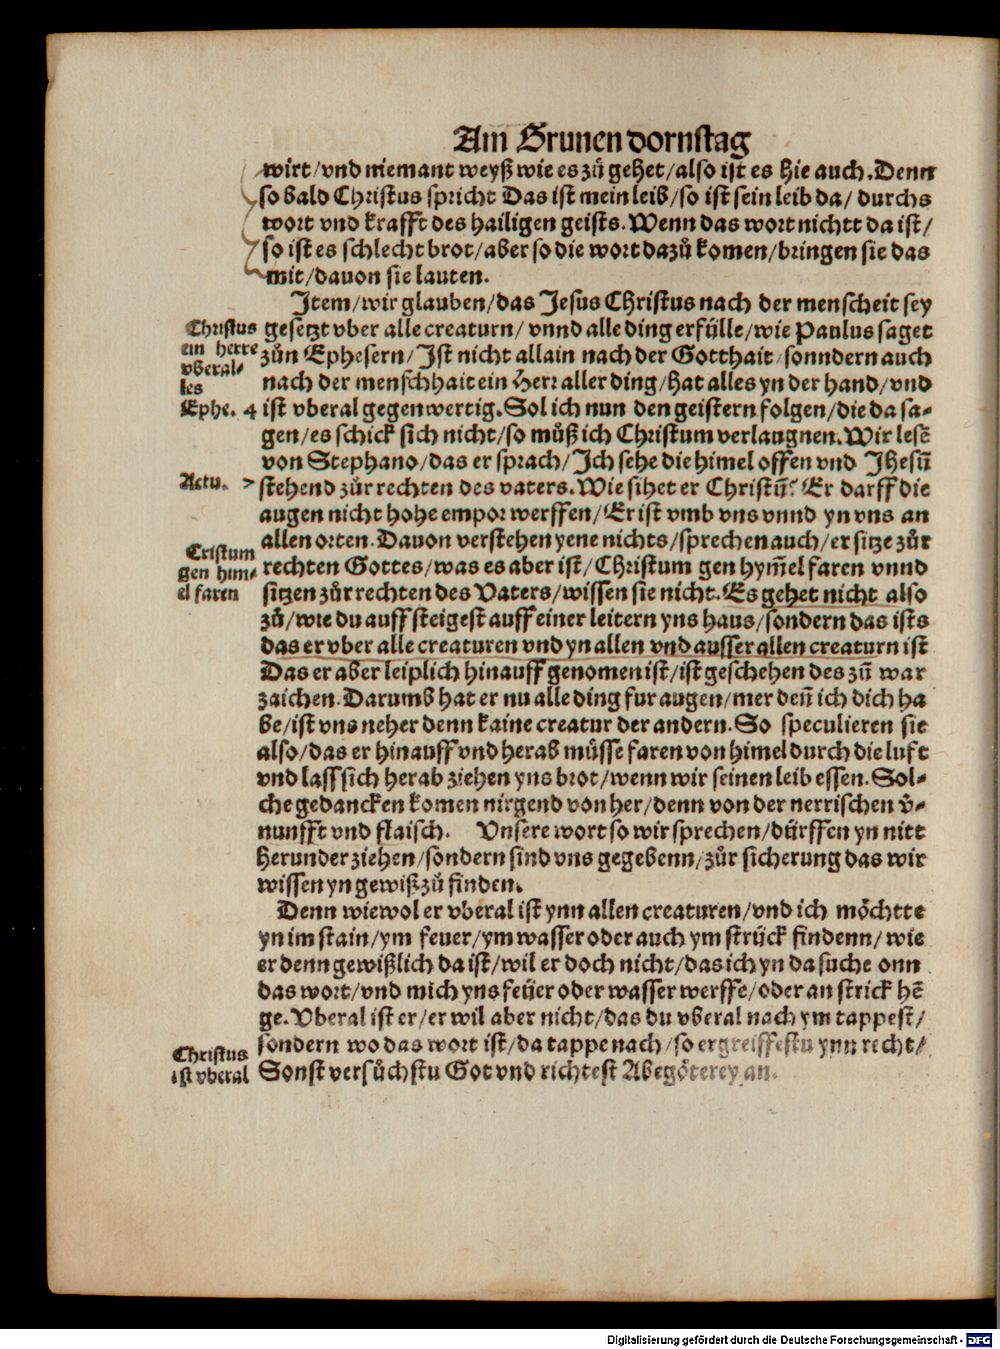 Am Grunen dornstag
wirt/vnd niemant weyß wie es zů gehet/also ist es hie auch.Denn
so bald Christus spricht Das ist mein leib/so ist sein leib da/ durchs
wort vnd krafft des hailigen geists.Wenn das wort nichtt da ist/
so ist es schlecht brot/aber so die wort dazů komen/bringen sie das
mit/dauon sie lauten.
Item/wir glauben/das Jesus Christus nach der menscheit sey
gesetzt vber alle creaturn/ vnnd alle ding erfülle/wie Paulus saget
zůn Ephesern/Ist nicht allain nach der Gotthait/sonndern auch
nach der menschhait ein Herr aller ding/hat alles yn der hand/vnd
ist vberal gegenwertig.Sol ich nun den geistern folgen/die da sa-
gen/es schick sich nicht/so můß ich Christum verlaugnen.Wir lesē
von Stephano/das er sprach/Ich sehe die himel offen vnd Jhesū
stehend zůr rechten des vaters.Wie sihet er Christū? Er darff die
augen nicht hohe empor werffen/Er ist vmb vns vnnd yn vns an
allen orten.Dauon verstehen yene nichts/sprechen auch/er sitze zůr
rechten Gottes/was es aber ist/Christum gen hym̄el faren vnnd
sitzen zůr rechten des Vaters/wissen sie nicht.Es gehet nicht also
zů/wie du auff steigest auff einer leitern yns haus/sondern das ists
das er vber alle creaturen vnd yn allen vnd ausser allen creaturn ist
Das er aber leiplich hinauff genomen ist/ist geschehen des zū war
zaichen.Darumb hat er nu alle ding fur augen/mer deñ ich dich ha
be/ist vns neher denn kaine creatur der andern.So speculieren sie
also/das er hinauff vnd herab müsse faren von himel durch die luft
vnd lass sich herab ziehen yns brot/wenn wir seinen leib essen.Sol-
che gedancken komen nirgend von her/denn von der nerrischen v̄-
nunfft vnd flaisch. Vnsere wort so wir sprechen/dürffen yn nitt
herunder ziehen/sondern sind vns gegebenn/zůr sicherung das wir
wissen yn gewiß zů finden.
Denn wiewol er vberal ist ynn allen creaturen/vnd ich möchtte
yn im stain/ym feuer/ym wasser oder auch ym strück findenn/wie
er denn gewißlich da ist/wil er doch nicht/das ich yn da suche onn
das wort/vnd mich yns feüer oder wasser werffe/oder an strick hē
ge.Vberal ist er/er wil aber nicht/das du vberal nach ym tappest/
sondern wo das wort ist/da tappe nach/so ergreiffestu ynn recht/
Sonst versůchstu Got vnd richtest Abegöterey an.
Christus
ein herre
vberal-
les
Ephe. 4
Actu. 7
Cristum
gen him-
el faren
Christus
ist vberal
Digitalisierung gefördert durch die Deutsche Forschungsgemeinschaft - DFG